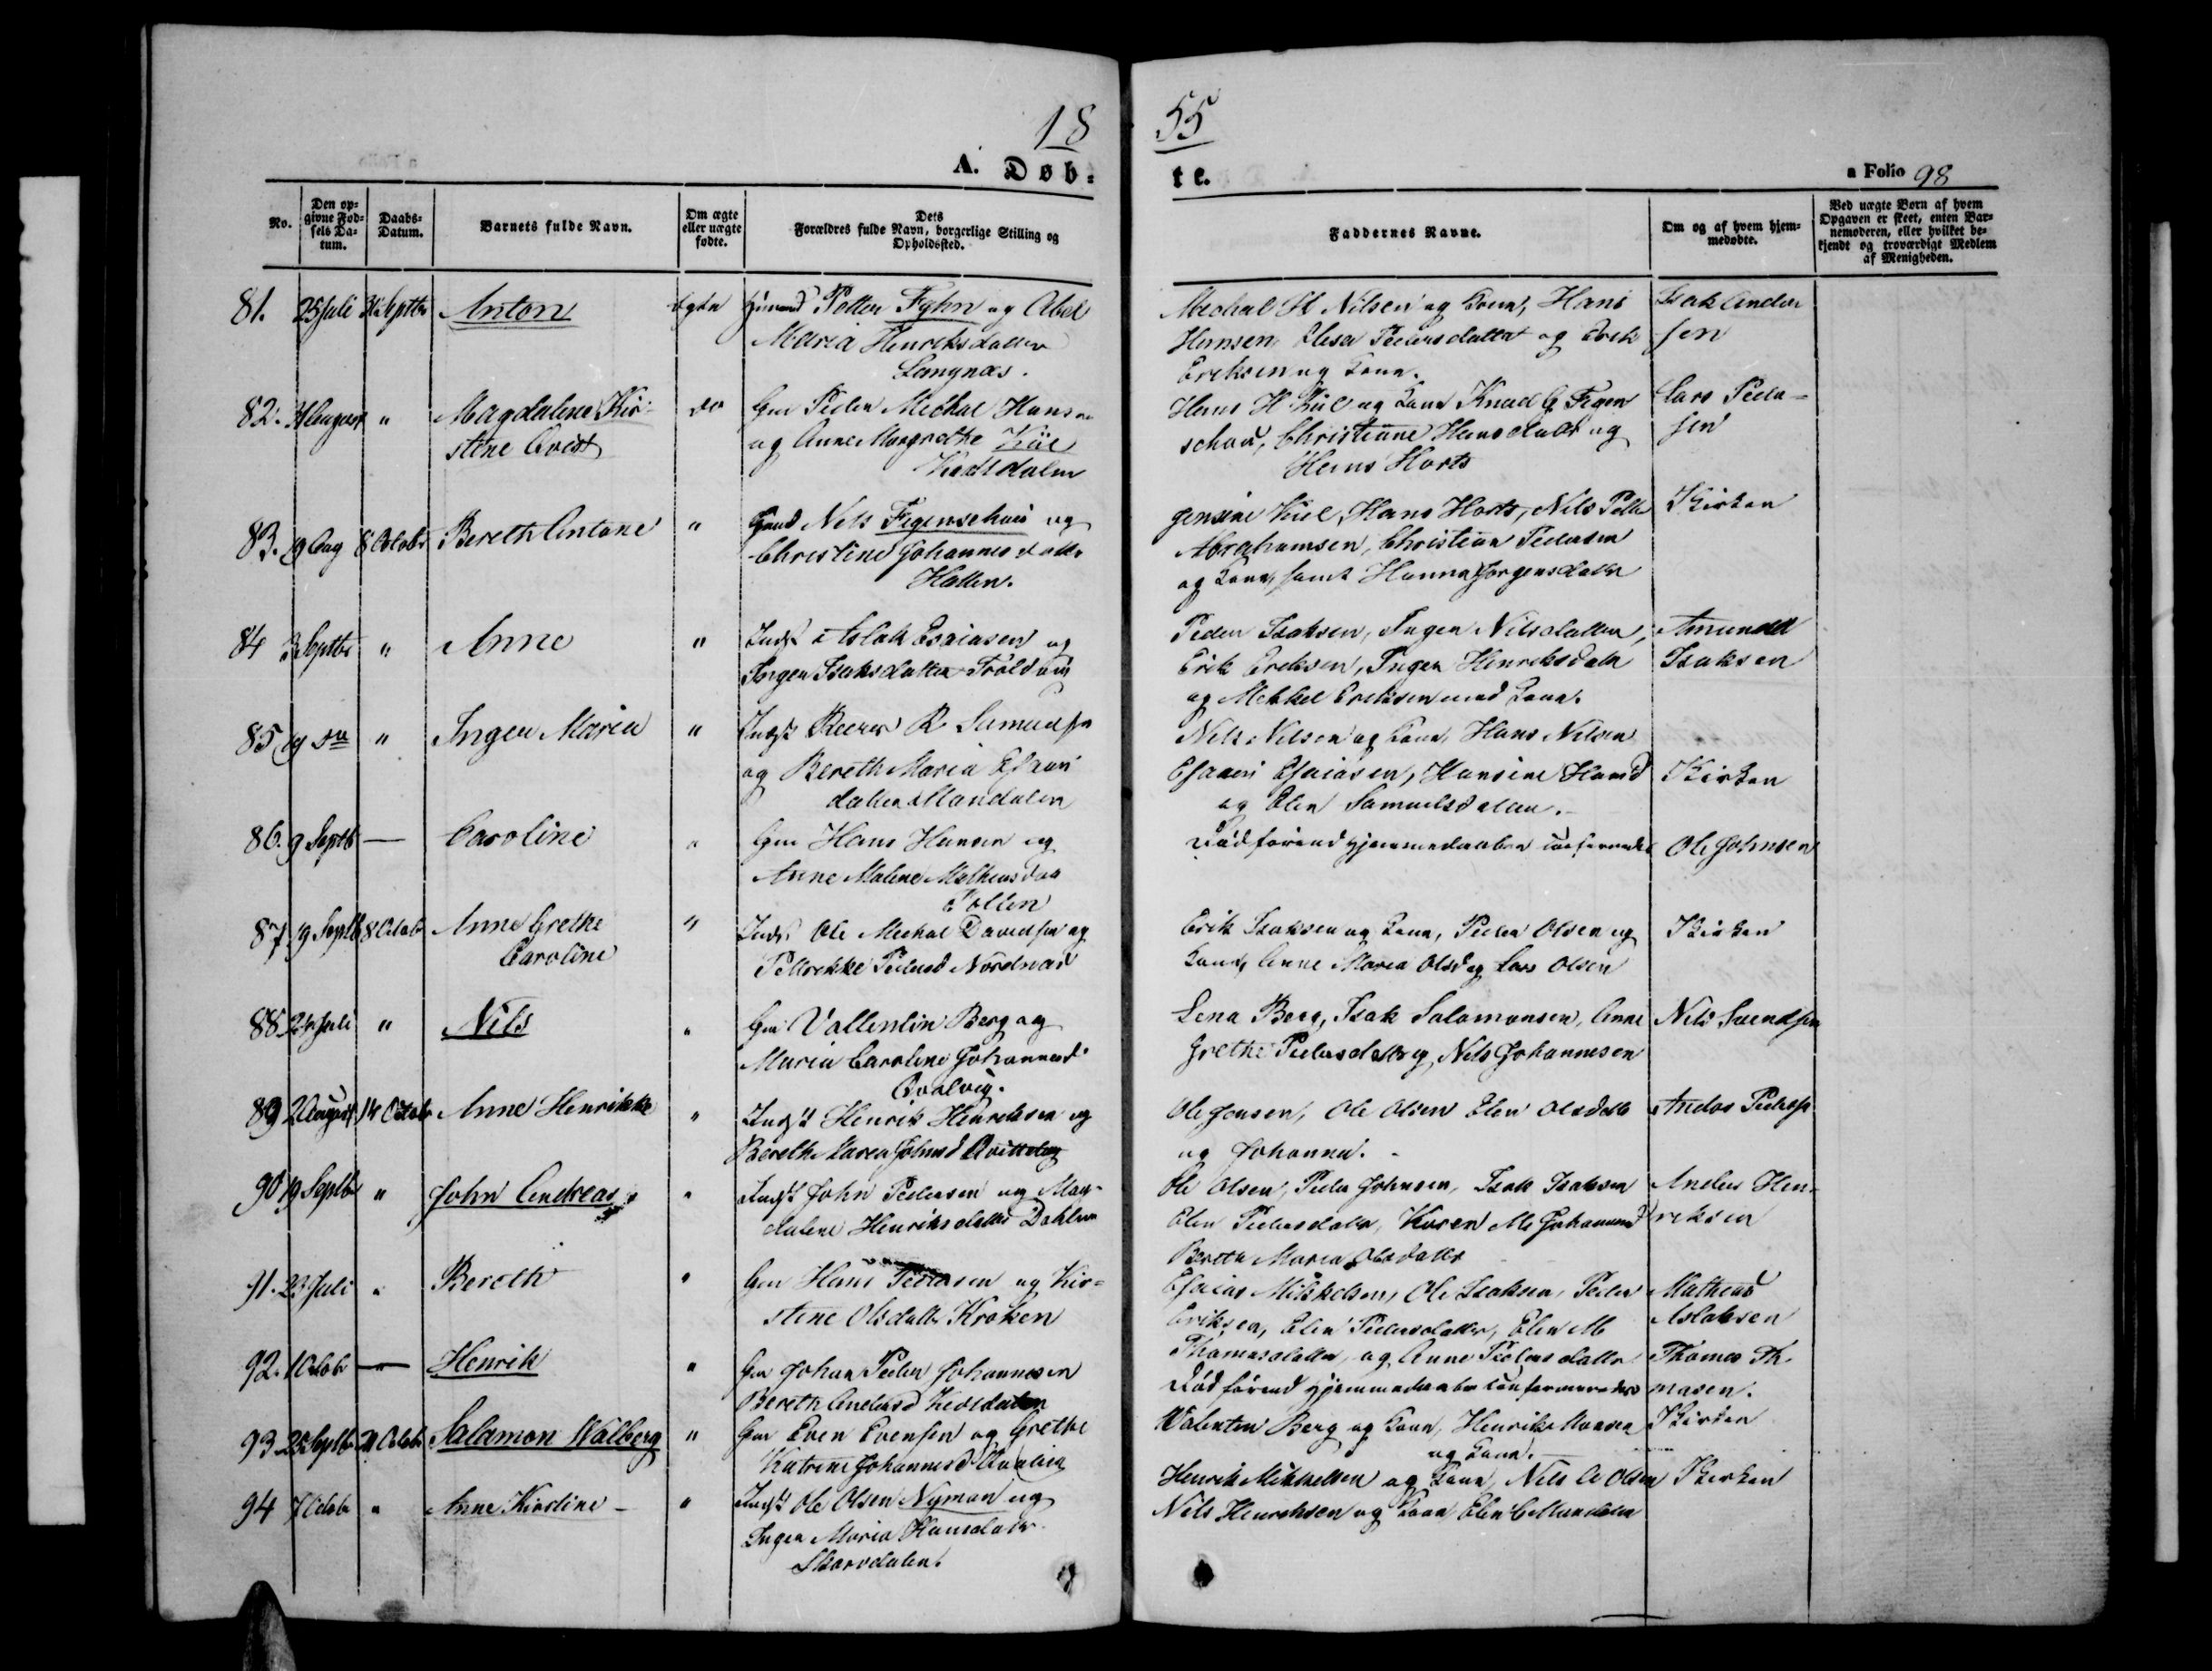 18 55
A. Døb- te.
a Folio 98
No.
Den opgivne Fødsels Datum.
Daabs-Datum.
Barnets fulde Navn.
Om ægte eller uægte fødte.
Dets Forældres fulde Navn, borgerlige Stilling og Opholdssted.
Faddernes Navne.
Om og af hvem hjemmedøbte.
Ved uægte Børn af hvem Opgaven er skeet, enten Barnemoderen, eller hvilket bekjendt og troværdigt Medlem af Menigheden.
81. 25 Juli Septbr Anton Petter Fyhn og Abel
Maria Henriksdatter
Langnæs.
Mechal H Nilsen og Kone, Hans
Hansen, Elesa Pedersdatter og Erik
Eriksen og Kone.
Isak Ander
sen
82. August " Magdalena Kir-
stine Qvist
do Gm Peder Mechal Hansen
og Anne Margrethe Kiil
Kieldalen
Hans H Kiil og Kone Knud G Figen
schou, Christiane Hansdatter og
Hans Horts
Lars Peder-
sen
83. 19 Aug 8 Octobr Bereth Antone " Nels Figenschou og
Christine Johannesdatter
Hatten.
Jensine Kiil, Hans Horts, Nils Petter
Abrahamsen, Christian Pedersen
og Kone, samt Hanna Jørgensdatter
Kirken
84 3 Septbr " Anne " Indst Aslak Esaiasen og
Inger Isaksdatter Troldvig
Peder Isaksen, Inger Nilsdatter,
Erik Eriksen, Inger Henriksdatter
og Mekkel Eriksen med Kone.
Amund
Isaksen
85 19 do " Inger Maria " Indst R Samuelsen
og Bereth Maria Esaias
datter Mandalen
Nils Nilsen og Kone, Hans Nilsen
Esaias Esaiasen, Hansine Hansd
og Elen Samuelsdatter.
Kirken
86. 9 Septb — Caroline " Gm Hans Hansen og
Anne Malene Matheusdaa
Pollen
Død førend Hjemmedaaben confirmeret
Ole Johnsen
87 19 Septb 8 Octobr Anne Grethe
Caroline
" Indst Ole Mechal Davidsen og
Pedersd Nordnæs
Erik Isaksen og Kone, Peder Olsen og
Kone, Anne Maria Olsd og Lars Olsen
Kirken
88. 24 Juli " Nils " Gm Vallentin Berg og
Maria Caroline Johannesd
Qvalvig.
Lena Berg, Isak Salamonsen, Anne
Grethe Pedersdatter og Nils Johannesen
Nils Svendsen
89 2 August 14 Octobr Anne Henrikke " Indst Henrik Henriksen og
Bereth Maria Johnsd
Ole Jensen, Ole Olsen Elen Olsdatter
og Johanna. -
Anders Peders
90 19 Septbr " John Andreas " Indst John Pedersen og Mag-
dalene Henriksdatter Dahlen
Ole Olsen, Peder Johnsen, Isak Isaksen
Elen Pedersdatter, Karen M. Johannesd
Berethe Maria Olsdatter
Anders Hen-
riksen
91. 23 Juli " Bereth " Gm Hans Pedersen og Kir-
stine Olsdatter Kroken
Esaias Mikkelsen, Ole Isaksen, Peder
Eriksen, Elen Pedersdatter, Elen M
Thomasdatter, og Anne Pedersdatter
Matheus
Aslaksen
92. 1 Octobr — Henrik " Gm Johan Peder Johannesen
Bereth Andersd Kieldalen
Død førend Hjemmedaaben confirmeredes
Thomas Th
masen.
93 Septbr 21 Octobr Salamon Walberg " Gm Even Evensen og Grethe
Katrine Johannesd Qvalvig
Valentin Berg og Kone, Henrik Hansen
og Kone.
Kirken
94 7 Octobr " Anne Kirstine - " Indst Ole Olsen Nyman og
Inger Maria Hansdatter
Skarvdalen.
Henrik Mikkelsen og Kone, Nils A Olsen
Nils Henriksen og Kone Elen
Kirken